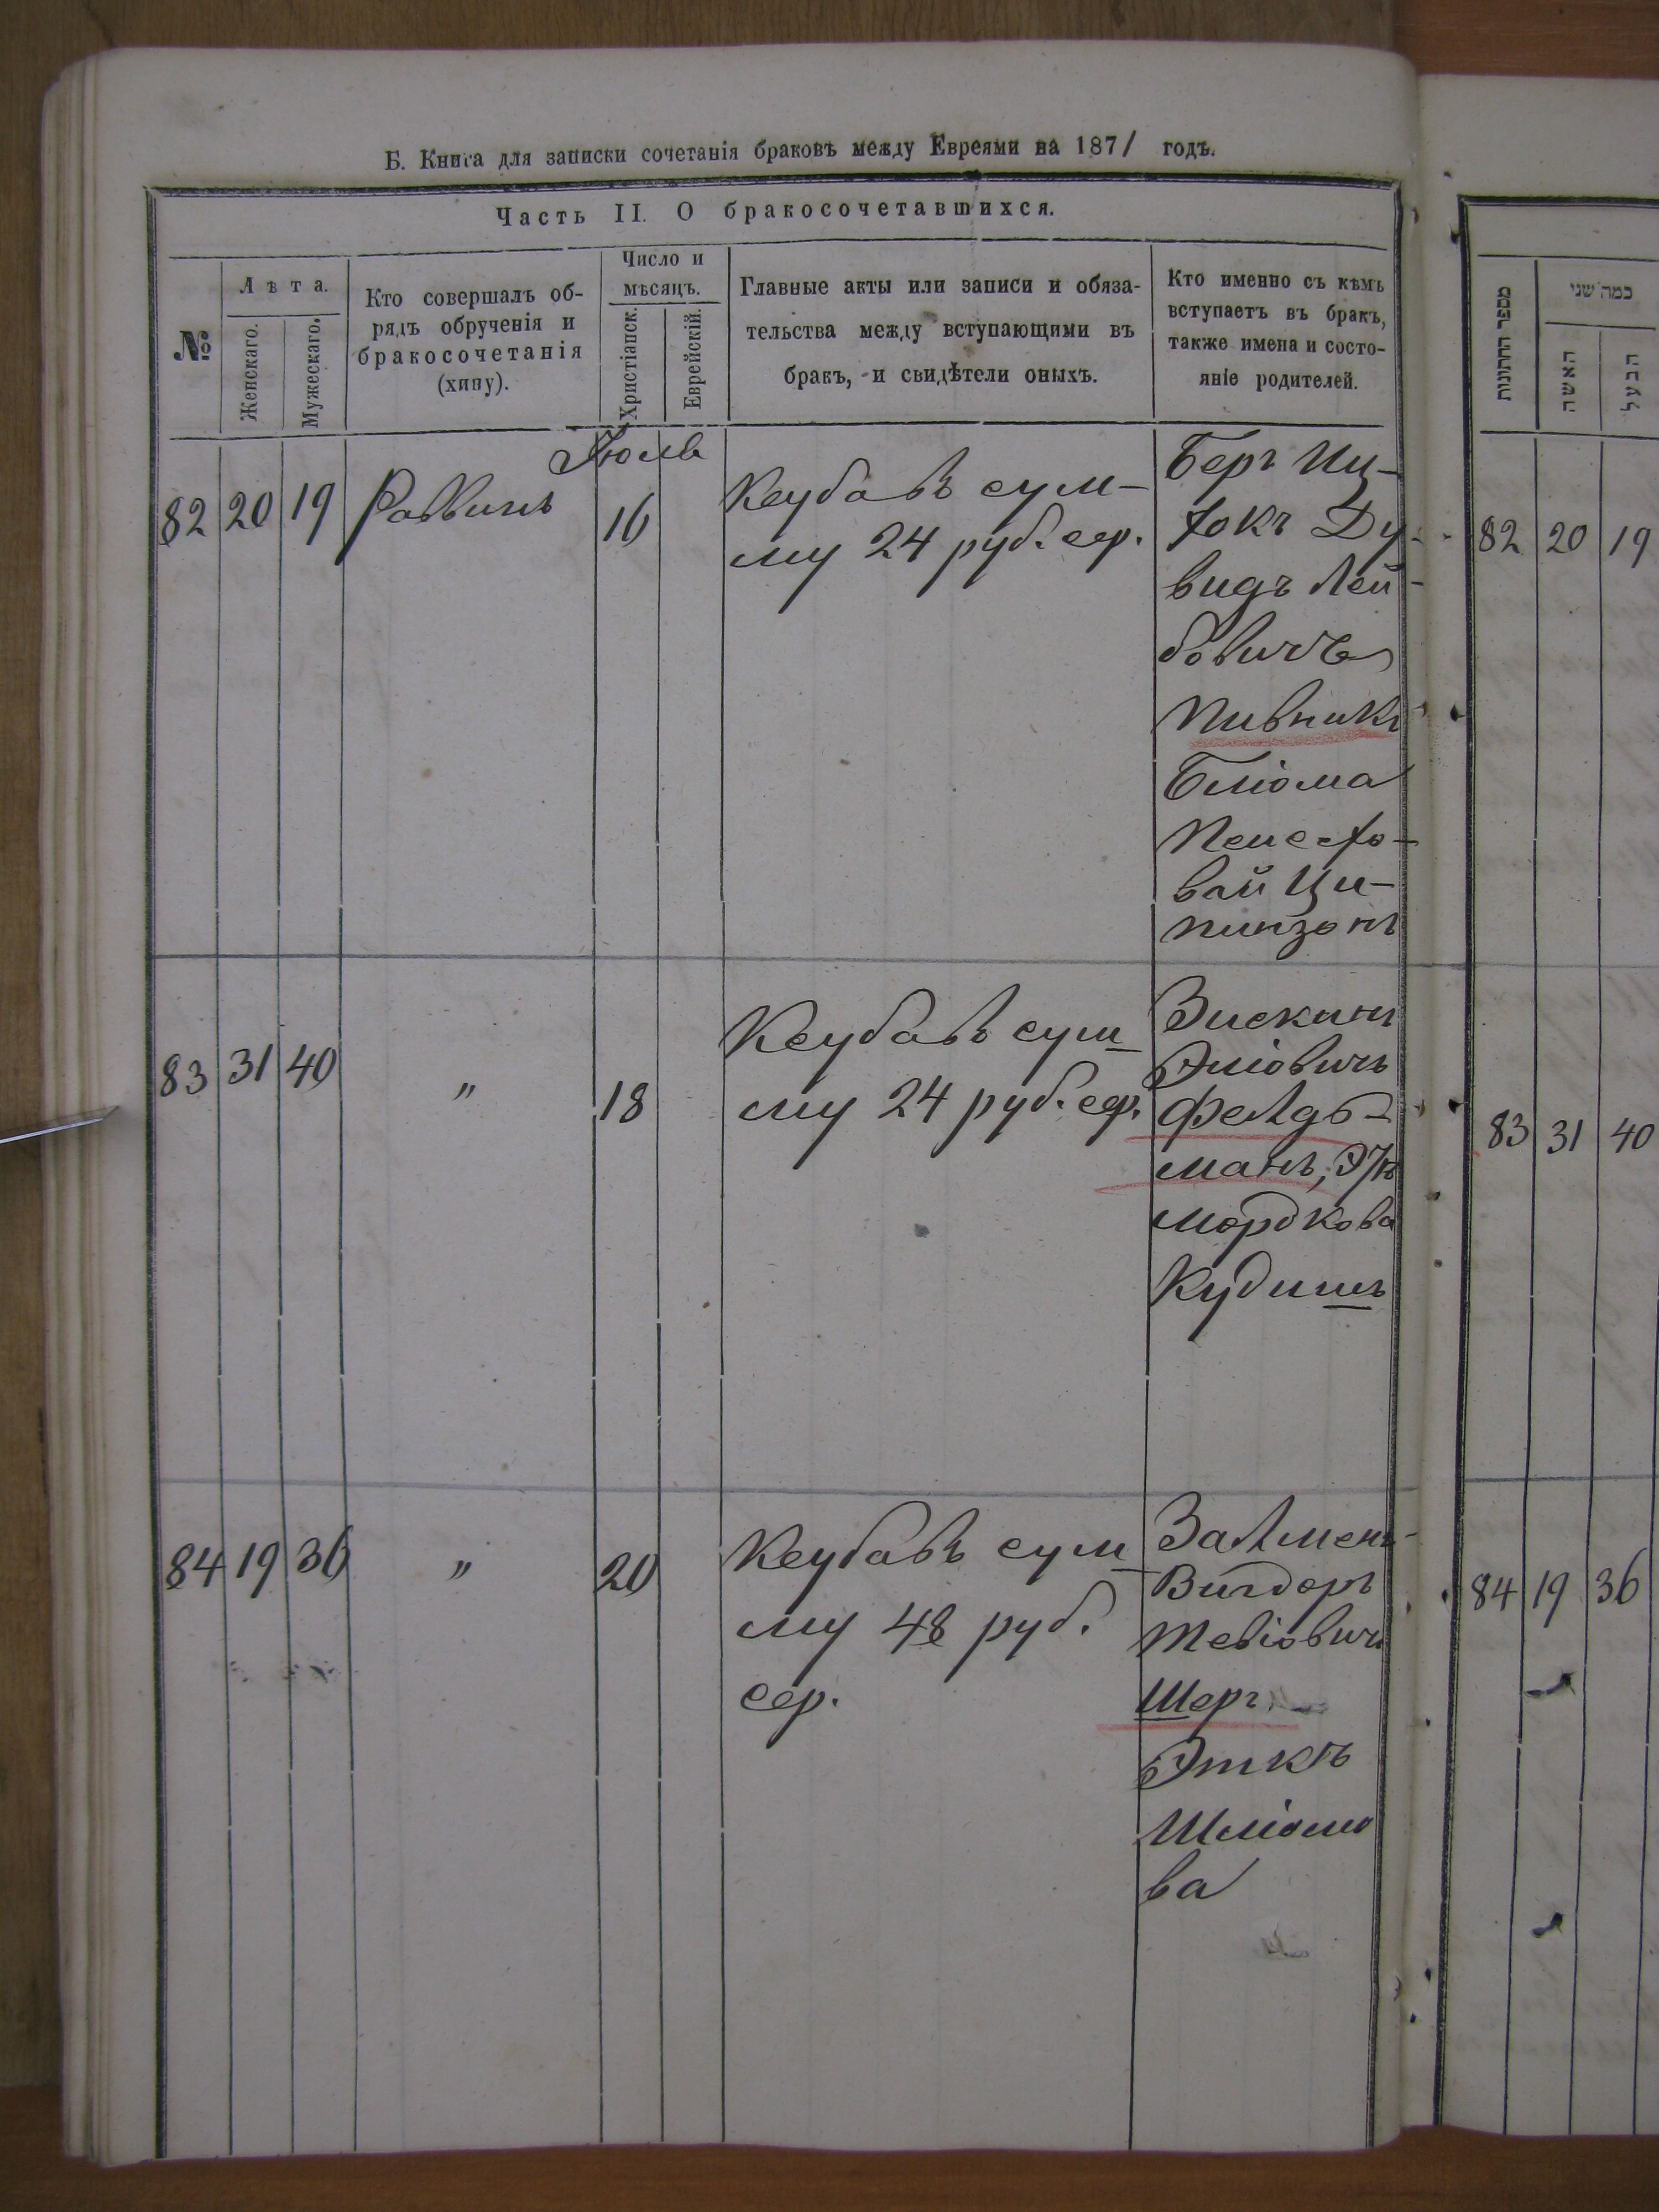 Б. Книга для записки сочетанія браковъ между Евреями на 1871 годъ.
Часть II. О бракосочетавшихся.
№
Лѣта.
Женскаго.
Мужескаго.
Кто совершалъ об-
рядъ обрученія и
бракосочетанія
(хипу).
Число и
мѣсяцъ.
Христіанск.
Еврейскій.
Главные акты или записи и обяза-
тельства между вступающими въ
бракъ, и свидѣтели оныхъ.
Кто именно съ кѣмъ
вступаетъ въ бракъ,
также имена и состо-
яніе родителей.
Іюль
82 20 19 Раввинъ 16
Кеубавъ сум-
му 24 руб. сер.
Беръ Иц-
хокъ Ду-
видъ Лей-
бовичъ
Пивникъ
Бліома
Пейсахо-
вай Ци-
пинзонъ
83 31 40 " 18
Кеубавъ сум
му 24 руб. сер.
Зискинъ
Эліовичъ
Фельдь-
манъ,
Мордкова
Кудишъ
84 19 36 " 20
Кеубавъ сум
му 48 руб.
сер.
Залмень-
Вигдоръ
Тевіовичъ
Шеръ
Эткъ
Шліомо
ва
מספר החתונות
כמה שני
האשה
הבעל
82 20 19
83 31 40
84 19 36